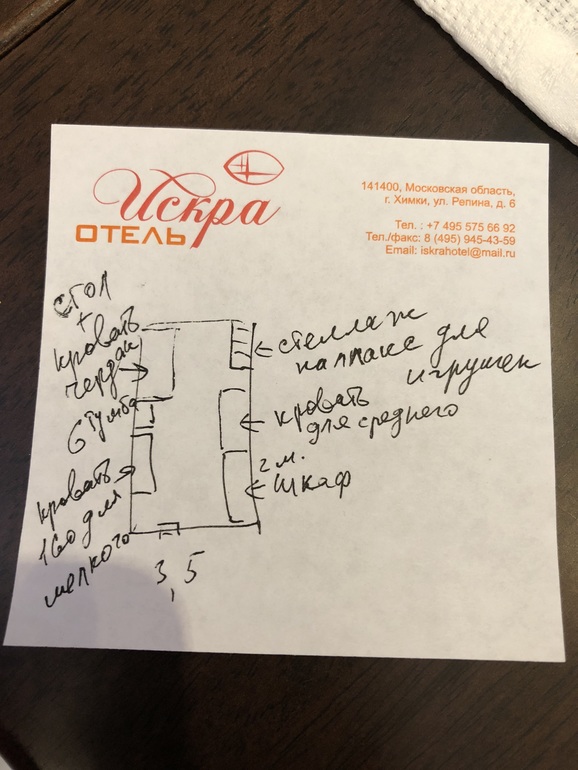 Искра
ОТЕЛЬ
141400, Московская область,
г. Химки, ул. Репина, д. 6
Тел. : +7 495 575 66 92
Тел./факс: 8 (495) 945-43-59
Email: iskrahotel@mail.ru
стол
+
кровать
чердак
тумба
кровать
160 для
мелкого
стеллаж
для
игрушек
кровать
для среднего
2 м.
шкаф
3,5